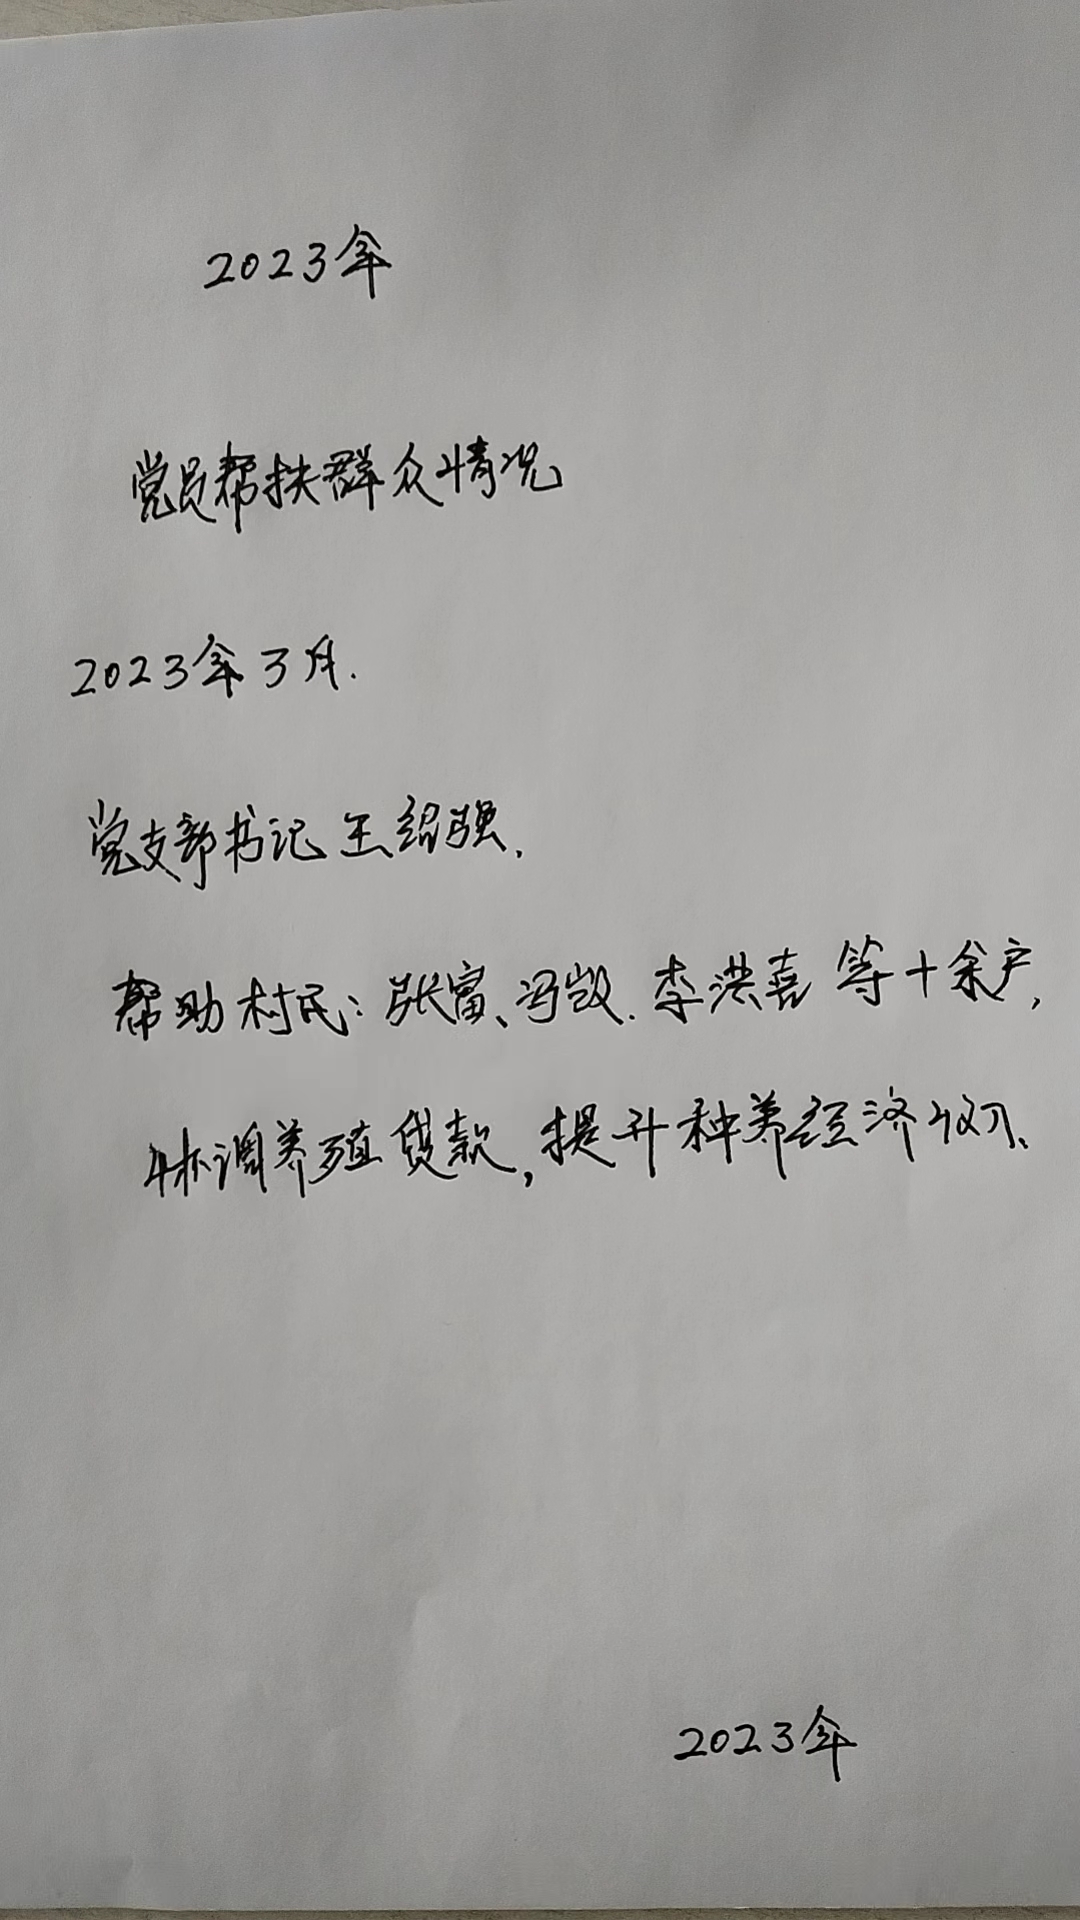 2023年
党员帮扶群众情况
2023年3月.
党支部书记王绍强.
帮助村民:张富、冯凯.李洪喜等十余户,
协调养殖贷款,提升种养经济收入、
2023年